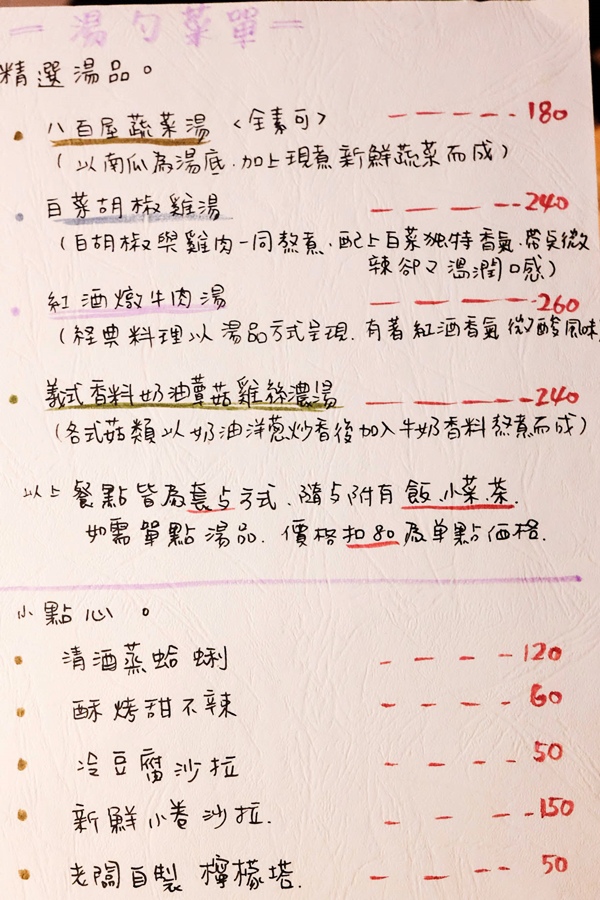 = 湯勺菜單 =
精選湯品。
• 八百屋蔬菜湯 <全素可> ----- 180
(以南瓜為湯底.加上現煮新鮮蔬菜而成)
• 白菜胡椒雞湯 ----- 240
(白胡椒與雞肉一同熬煮.配上白菜独特香氣.帶点微
辣卻又溫潤口感)
• 紅酒燉牛肉湯 ----- 260
(経典料理以湯品方式呈現.有著紅酒香氣微酸風味
• 義式香料奶油蕈菇雞絲濃湯 ---- 240
(各式菇類以奶油洋蔥炒香後加入牛奶香料熬煮而成)
以上餐點皆為套点方式.隨点附有飯.小菜.茶.
如需單點湯品.價格扣80為单點価格.
小點心。
• 清酒蒸蛤蜊 ---- 120
• 酥烤甜不辣 ---- 60
• 冷豆腐沙拉 ---- 50
• 新鮮小卷沙拉. ---- 150
• 老闆自製檸檬塔. ---- 50